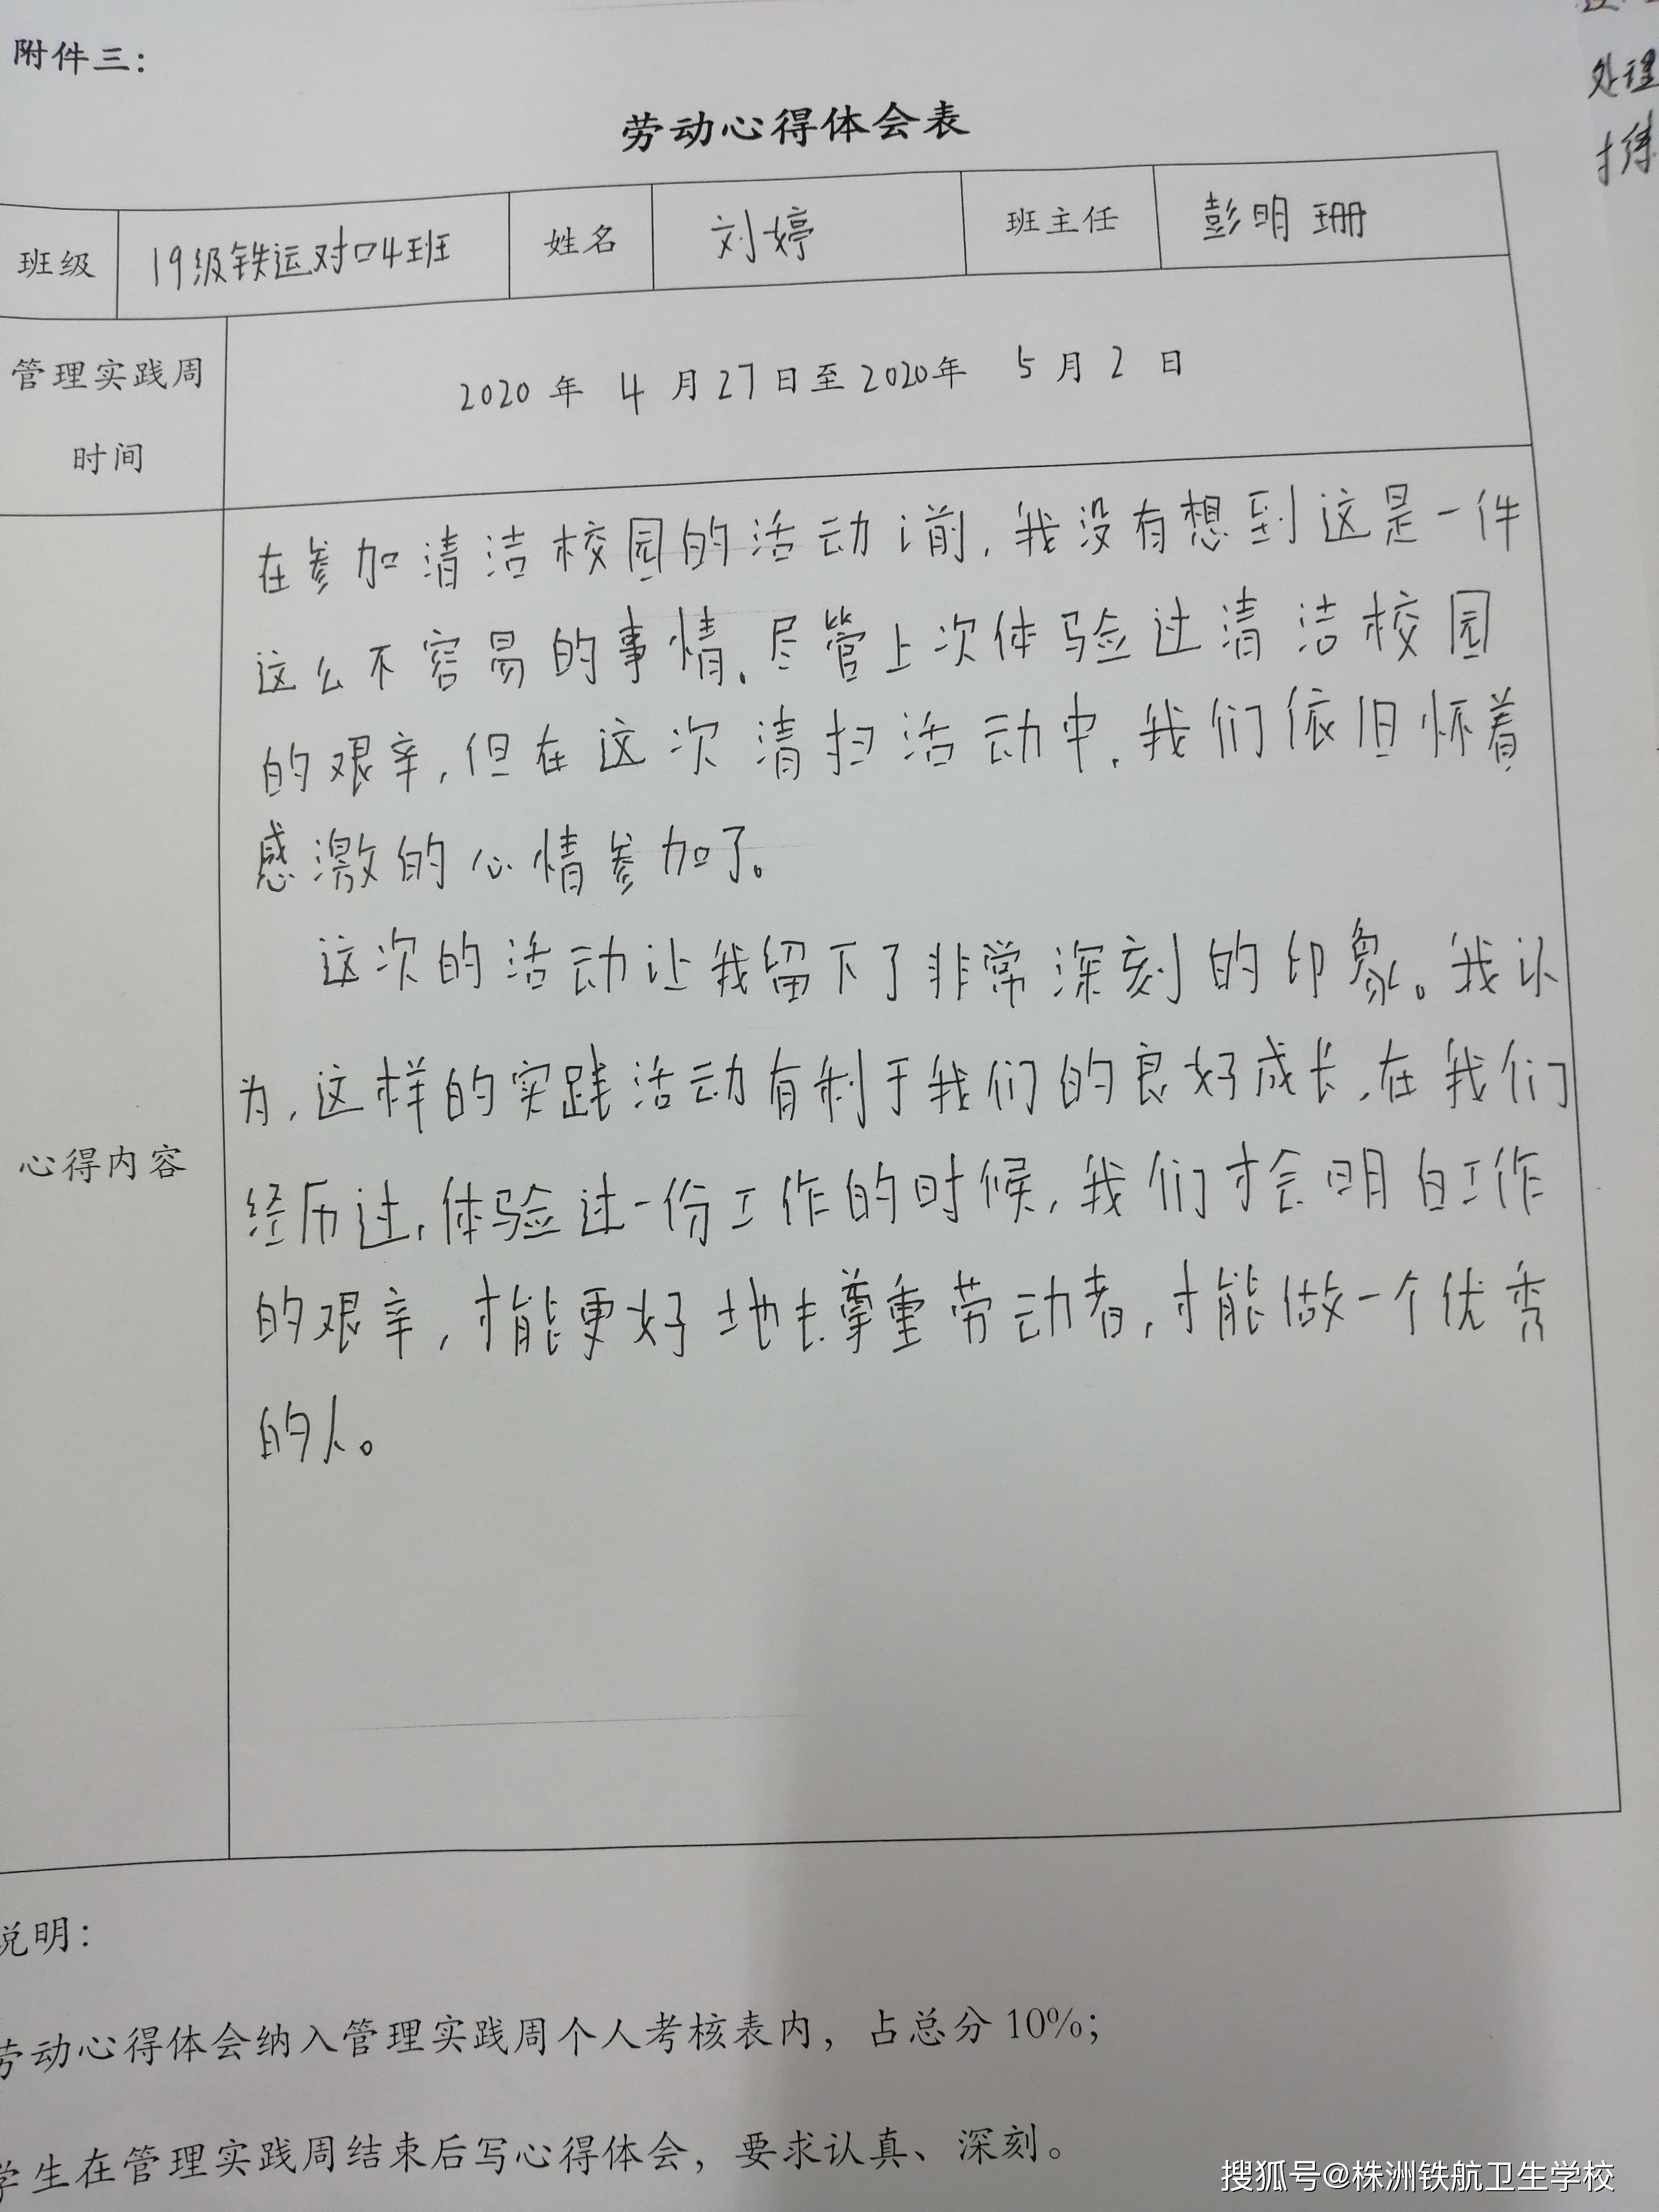 附件三:
处理
劳动心得体会表
班级 19级铁运对口4班 姓名 刘婷 班主任 彭明珊
管理实践周
时间
2020年 4月27日至2020年 5月2日
心得内容
在参加清洁校园的活动前,我没有想到这是一件
这么不容易的事情.尽管上次体验过清洁校园
的艰辛,但在这次清扫活动中.我们依旧怀着
感激的心情参加了。
这次的活动让我留下了非常深刻的印象。我认
为,这样的实践活动有利于我们的良好成长.在我们
经历过,体验过一份工作的时候,我们才会明白工作
的艰辛,才能更好地去尊重劳动者,才能做一个优秀
的人。
说明:
劳动心得体会纳入管理实践周个人考核表内，占总分10%;
学生在管理实践周结束后写心得体会，要求认真、深刻。
搜狐号@株洲铁航卫生学校